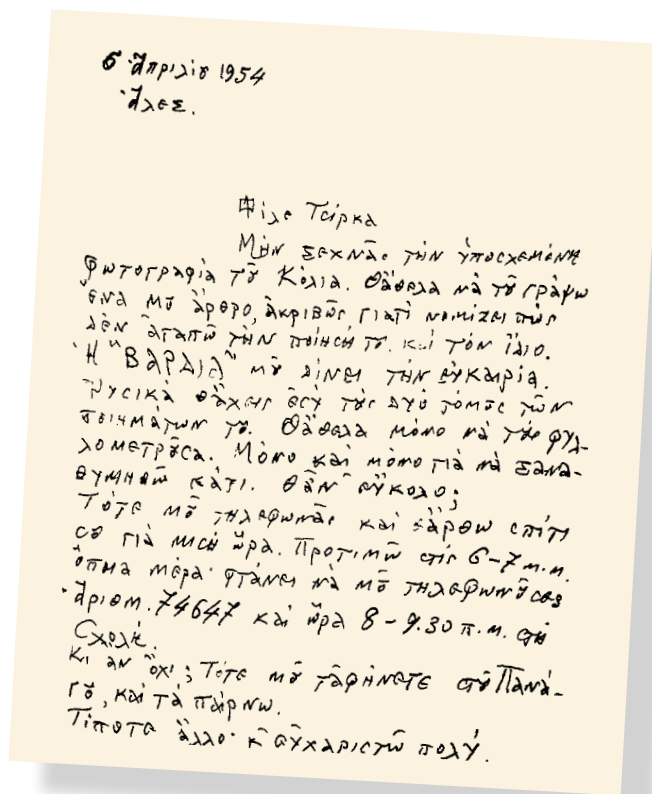 6 Ἀπριλίου 1954
Ἀλεξ.
Φίλε Τσίρκα
Μὴν ξεχνᾶς τὴν ὑποσχεμένη
φωτογραφία τοῦ Κόλια. Θἄθελα νὰ τοῦ γράψω
ἕνα μου ἄρθρο, ἀκριβῶς γιατὶ νομίζει πὼς
δὲν ἀγαπῶ τὴν ποίησή του καὶ τὸν ἴδιο.
Ἡ "Βάρδια" μοῦ δίνει τὴν εὐκαιρία.
Φυσικὰ θἄχεις ἐσὺ τοὺς δυὸ τόμους τῶν
ποιημάτων του. Θἄθελα μόνο νὰ τοὺς φυλ-
λομετροῦσα. Μόνο καὶ μόνο γιὰ νὰ ξανα-
θυμηθῶ κάτι. Θἆν' εὔκολο;
Τότε μοῦ τηλεφωνᾶς καὶ ἔρθω σπίτι
σου γιὰ μισὴ ὥρα. Προτιμῶ στὶς 6-7 μ.μ.
ὅποια μέρα· φτάνει νὰ μοῦ τηλεφωνοῦσες
Ἀριθμ. 74647 καὶ ὥρα 8-9.30 π.μ. στὴ
Σχολή.
Κι ἂν ὄχι; Τότε μοῦ τἀφήνετε στοῦ Πανά-
γου, καὶ τὰ παίρνω.
Τίποτε ἄλλο· κ' εὐχαριστῶ πολύ.